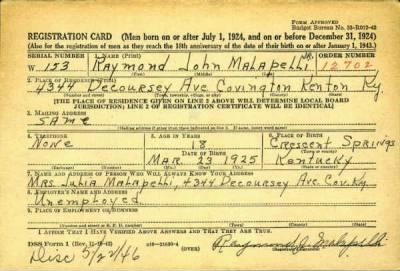 FORM APPROVED
Budget Bureau No. 33-R012-42
REGISTRATION CARD (Men born on or after July 1, 1924, and on or before December 31, 1924)
(Also for the registration of men as they reach the 18th anniversary of the date of their birth on or after January 1, 1943.)
SERIAL NUMBER
1. NAME (Print)
ORDER NUMBER
W. 153 Raymond John Malapelli JR. 12702
(First) (Middle) (Last)
2. PLACE OF RESIDENCE (Print)
4344 Decoursey Ave Covington Kenton Ky.
(Number and street) (Town, township, village, or city) (County) (State)
[THE PLACE OF RESIDENCE GIVEN ON LINE 2 ABOVE WILL DETERMINE LOCAL BOARD
JURISDICTION; LINE 2 OF REGISTRATION CERTIFICATE WILL BE IDENTICAL]
3. MAILING ADDRESS
SAME
4. TELEPHONE
5. AGE IN YEARS
6. PLACE OF BIRTH
None
18
Crescent Springs
DATE OF BIRTH
MAR. 23 1925
Kentucky
7. NAME AND ADDRESS OF PERSON WHO WILL ALWAYS KNOW YOUR ADDRESS
Mrs Julia Malapelli, 4344 Decoursey Ave. Cov. Ky.
8. EMPLOYER'S NAME AND ADDRESS
Unemployed
9. PLACE OF EMPLOYMENT OR BUSINESS
(Number and street or R. F. D. number) (Town) (County) (State)
I AFFIRM THAT I HAVE VERIFIED ABOVE ANSWERS AND THAT THEY ARE TRUE.
DSS Form 1
(OVER)
Raymond J. Malapelli
Disc 5/24/46